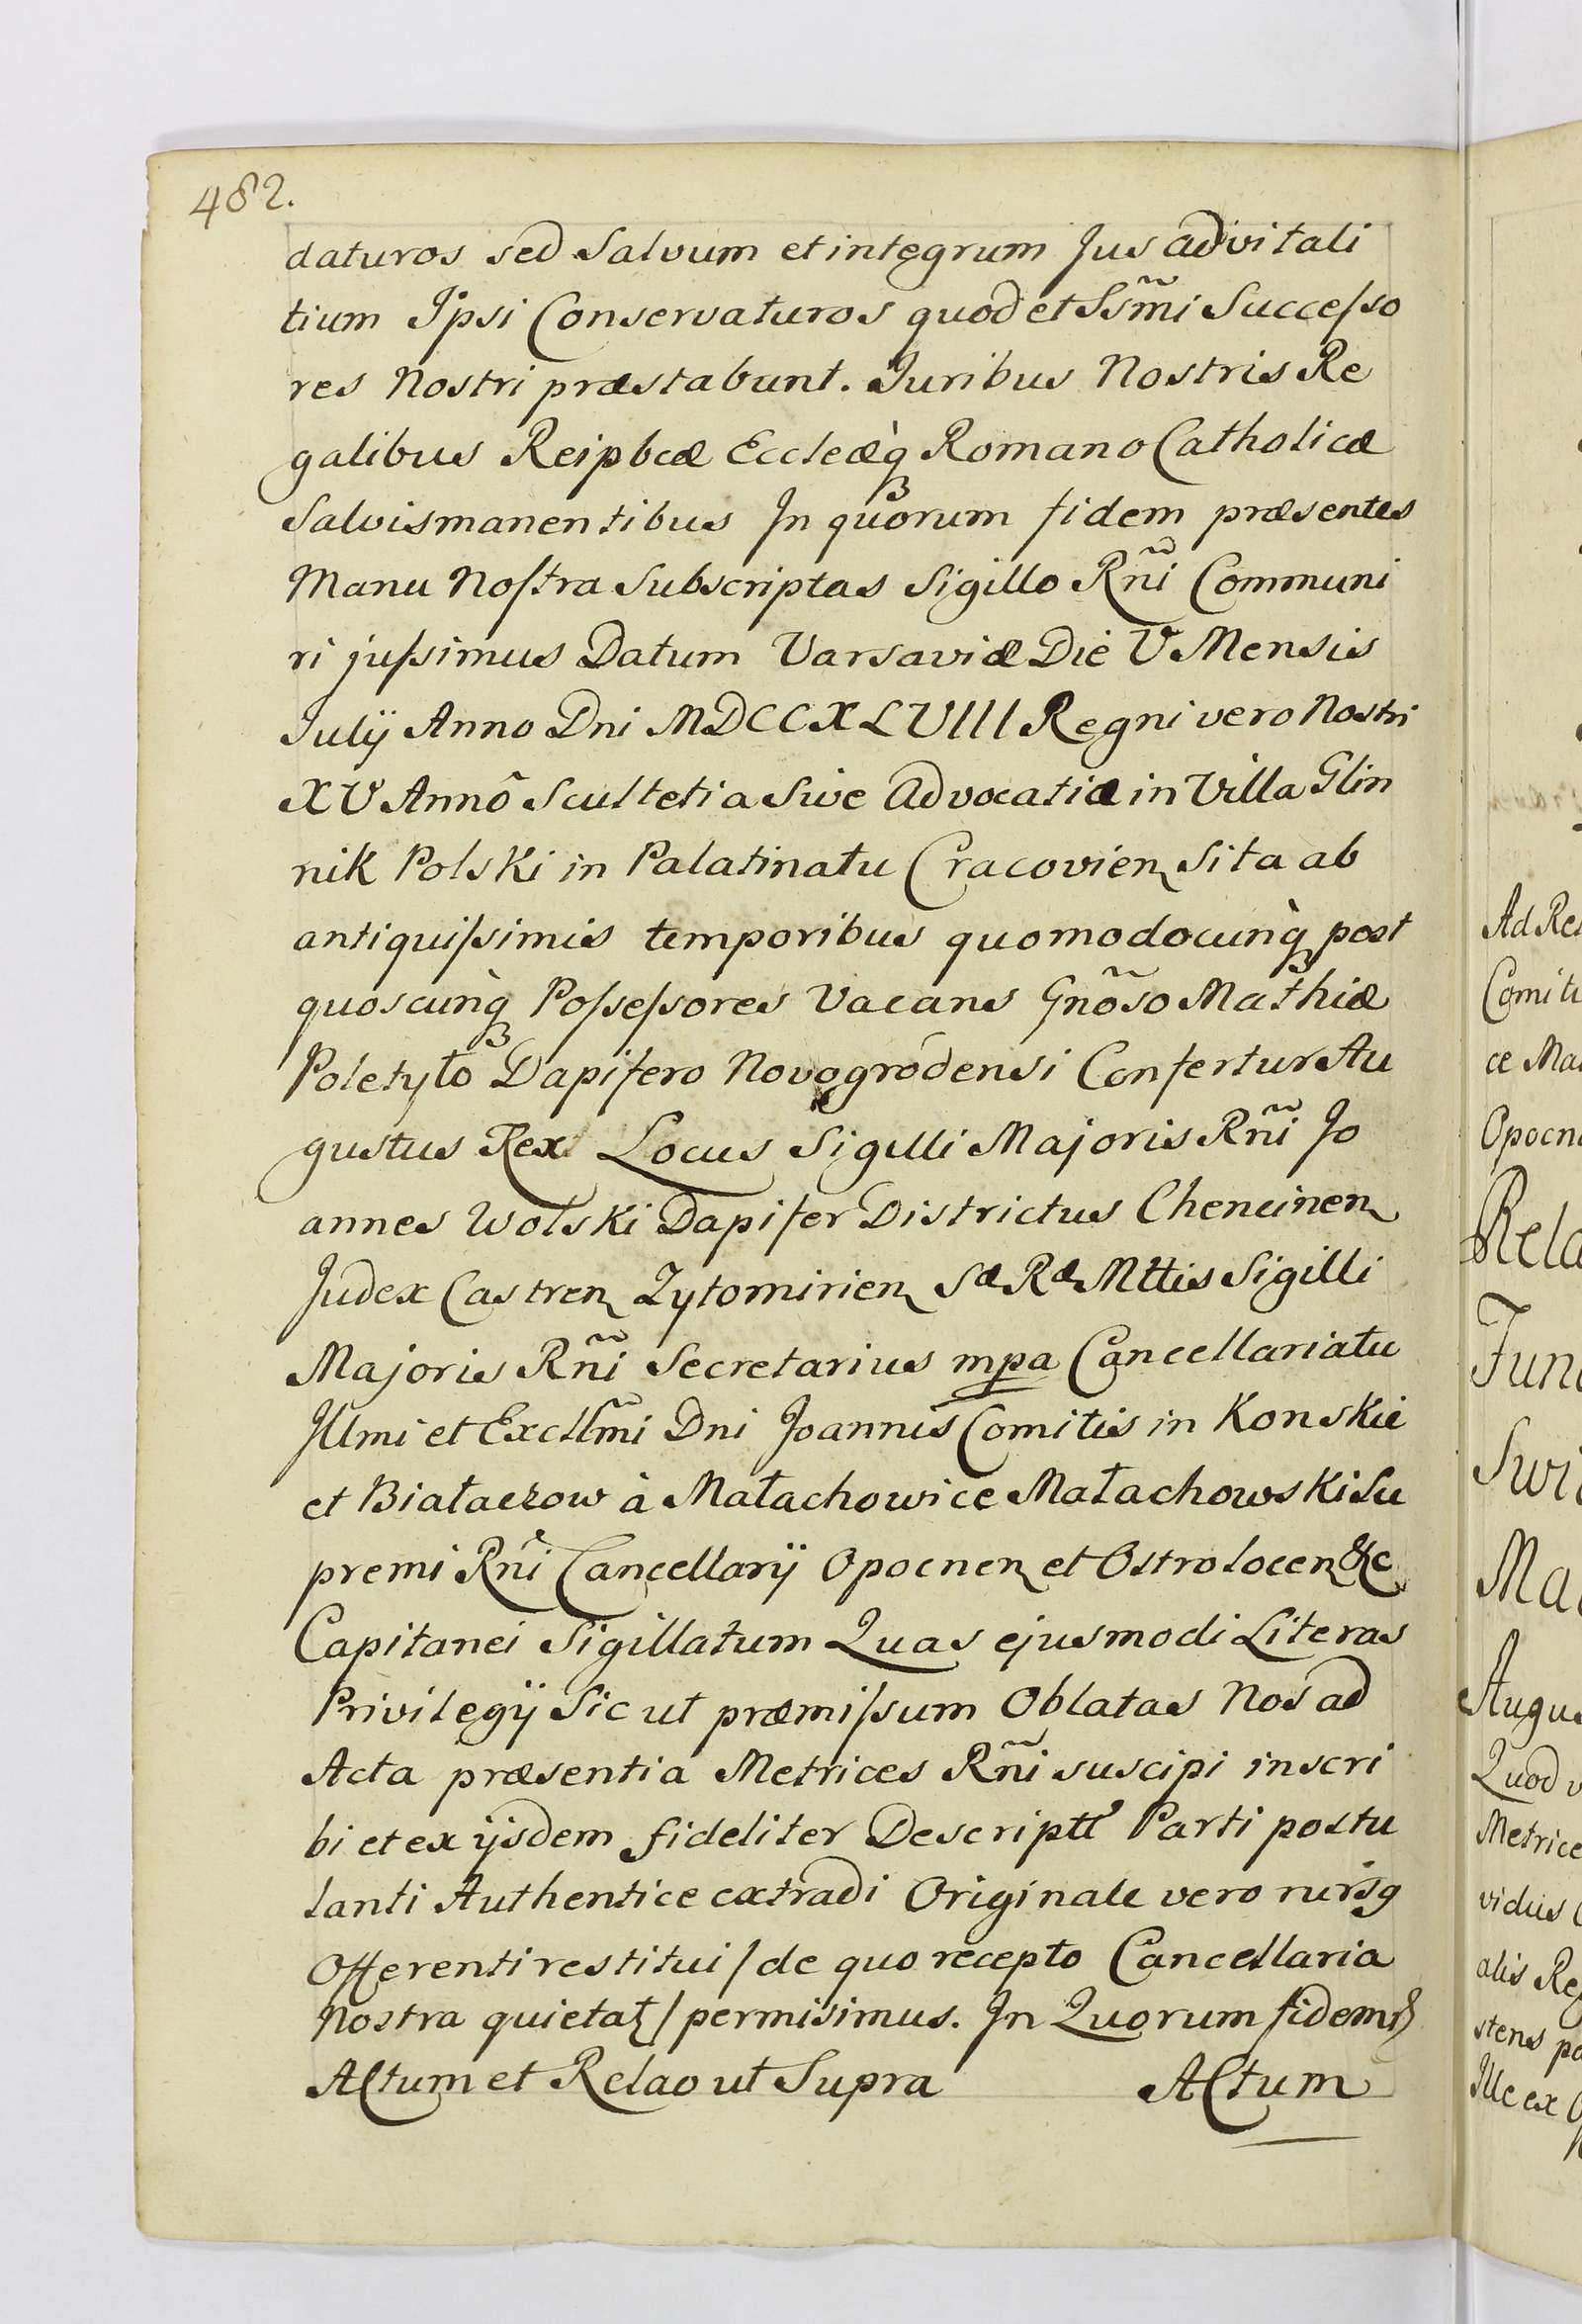 482.
daturos sed Salvum et integrum Jus advitali
tium Ipsi Conservaturos quod et Ssm̃i Successo
res Nostri præstabunt. Juribus Nostris Re
galibus Reipbcæ Eccleæq̀ꝫ Romano Catholicæ
Salvis manentibus In quorum fidem præsentes
Manu Nostra Subscriptas Sigillo Rñi Communi
ri jussimus Datum Varsaviæ Die V Mensis
Julij Anno Dni MDCCXLVIII Regni vero Nostri
XV Annô Scultetia Sive Advocatiæ in Villa Glin
nik Polski in Palatinatu Cracovien Sita ab
antiquissimis temporibus quomodocunq̀ꝫ post
quoscunq̀ꝫ Possessores Vacans Gnõso Mathiæ
Poletyło Dapifero Novogródensi Confertur Au
gustus Rex Locus Sigilli Majoris Rñi Jo
annes Wolski Dapifer Districtus Chencinen
Judex Castren Zytomirien Sæ Ræ Mttis Sigilli
Majoris Rñi Secretarius mpa Cancellariatu
Illmi et Excllm̃i Dni Joannis Comitis in Konskie
et Białaczow à Małachowice Małachowski Su
premi Rñi Cancellarij Opocnen et Ostrolocen &c
Capitanei Sigillatum Quas ejusmodi Literas
Privilegij Sic ut præmissum Oblatas Nos ad
Acta præsentia Metrices Rñi suscipi inscri
bi et ex ijsdem fideliter Descriptt Parti postu
lanti Authentice extradi Originale vero rursq
Offerenti restitui / de quo recepto Cancellaria
Nostra quietat / permisimus. In Quorum fidem
Actum et Relao ut Supra Actum
Ad Re
Comiti
ce Ma
Opocn
Rela
Jun
Swi
Ma
Augu
Quod v
Metrice
vidus
alis Re
stens po
Ille ex